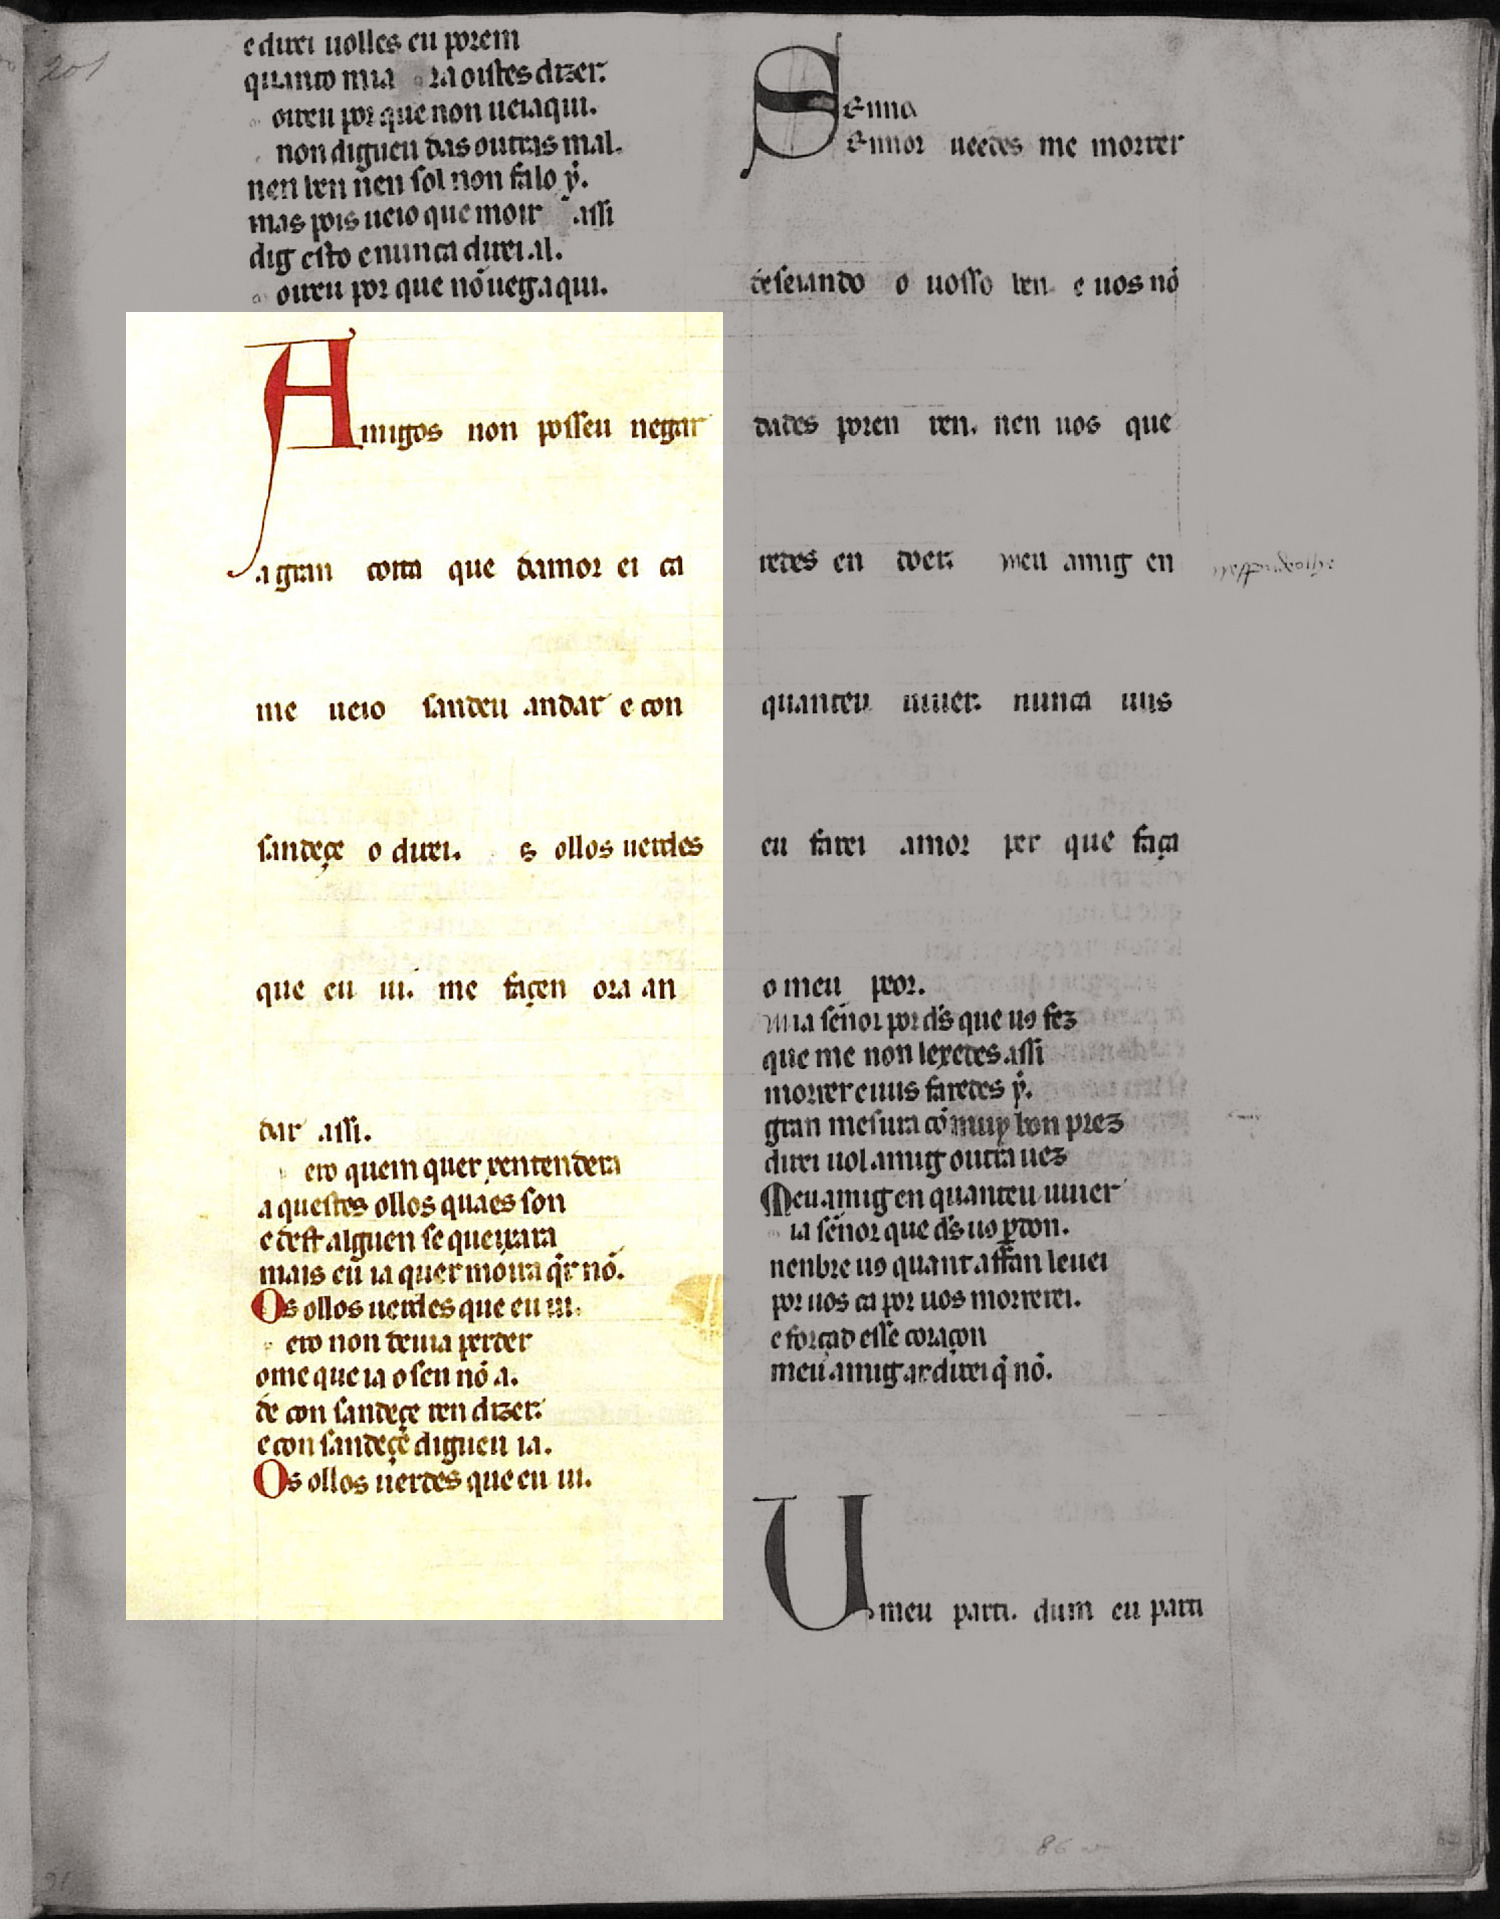 e direi uolles eu porem
quanto mia ra oistes dizer.
oireu por que non ueiaqui.
non digueu das outras mal.
nen ben nen sol non falo ẏ.
mas pois ueio que moir assi
dig esto e nunca direi.al.
oireu por que nõ ueg.aqui.
Amigos non posseu negar
a gran coita que damor ei ca
me ueio sandeu andar e con
sandeçe o direi. s ollos uerdes
que eu ui. me façen ora an
dar assi.
ero quem quer xentendera
aquestes ollos quaes son
e dest alguen se queixara
mais eu ia quer moira q̄r nõ.
Os ollos uerdes que eu ui.
ero non deuia perder
ome que ia o sen nõ a.
de con sandeçe ren dizer.
e con sandeçe digueu ia.
Os ollos uerdes que eu ui.
Senno
Ennor ueedes me morrer
deseiando o uosso ben e uos nõ
dades poren ren. nen uos que
redes en doer. meu amig en
quanteu uiuer. nunca uus
eu farei amor per que faça
o meu peor.
mia señor por ds̄ que uꝯ fez
que me non leixedes assi
morrer e uus faredes ẏ.
gran mesura cõ muy bon prez
direi uol.amig outra uez
Meu amig en quanteu uiuer
ia señor que ds̄ uꝯ ꝑdon.
nenbre uꝯ quant affan leuei
por uos ca por uos morrerei.
e forçad esse coraçon
meu.amig ar direi q̄ nõ.
U meu parti. dum eu parti
201
86